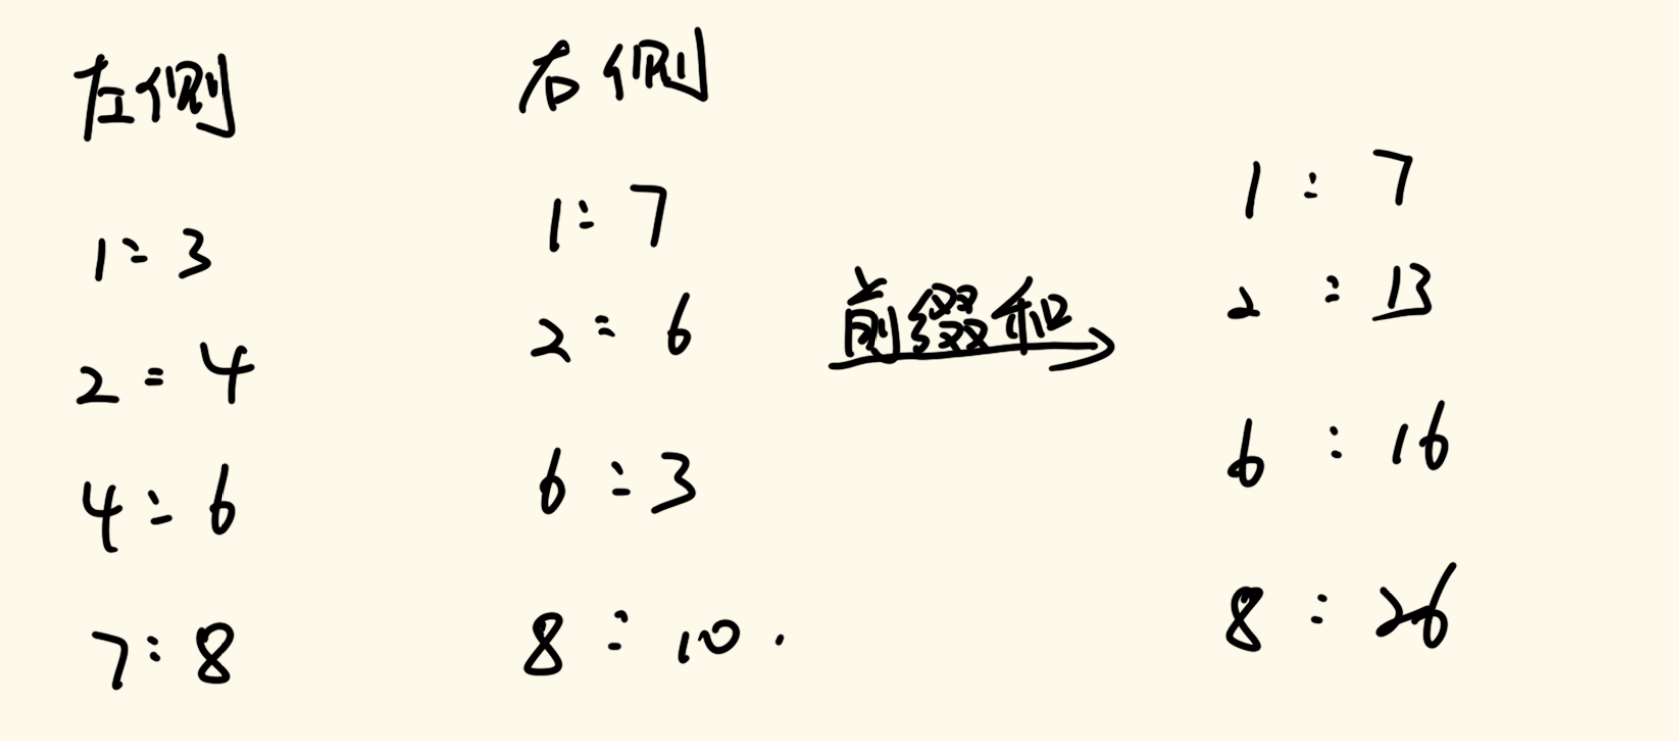 左侧
1：3
2：4
4：6
7：8
右侧
1：7
2：6
6：3
8：10.
前缀和
1：7
2：13
6：16
8：26